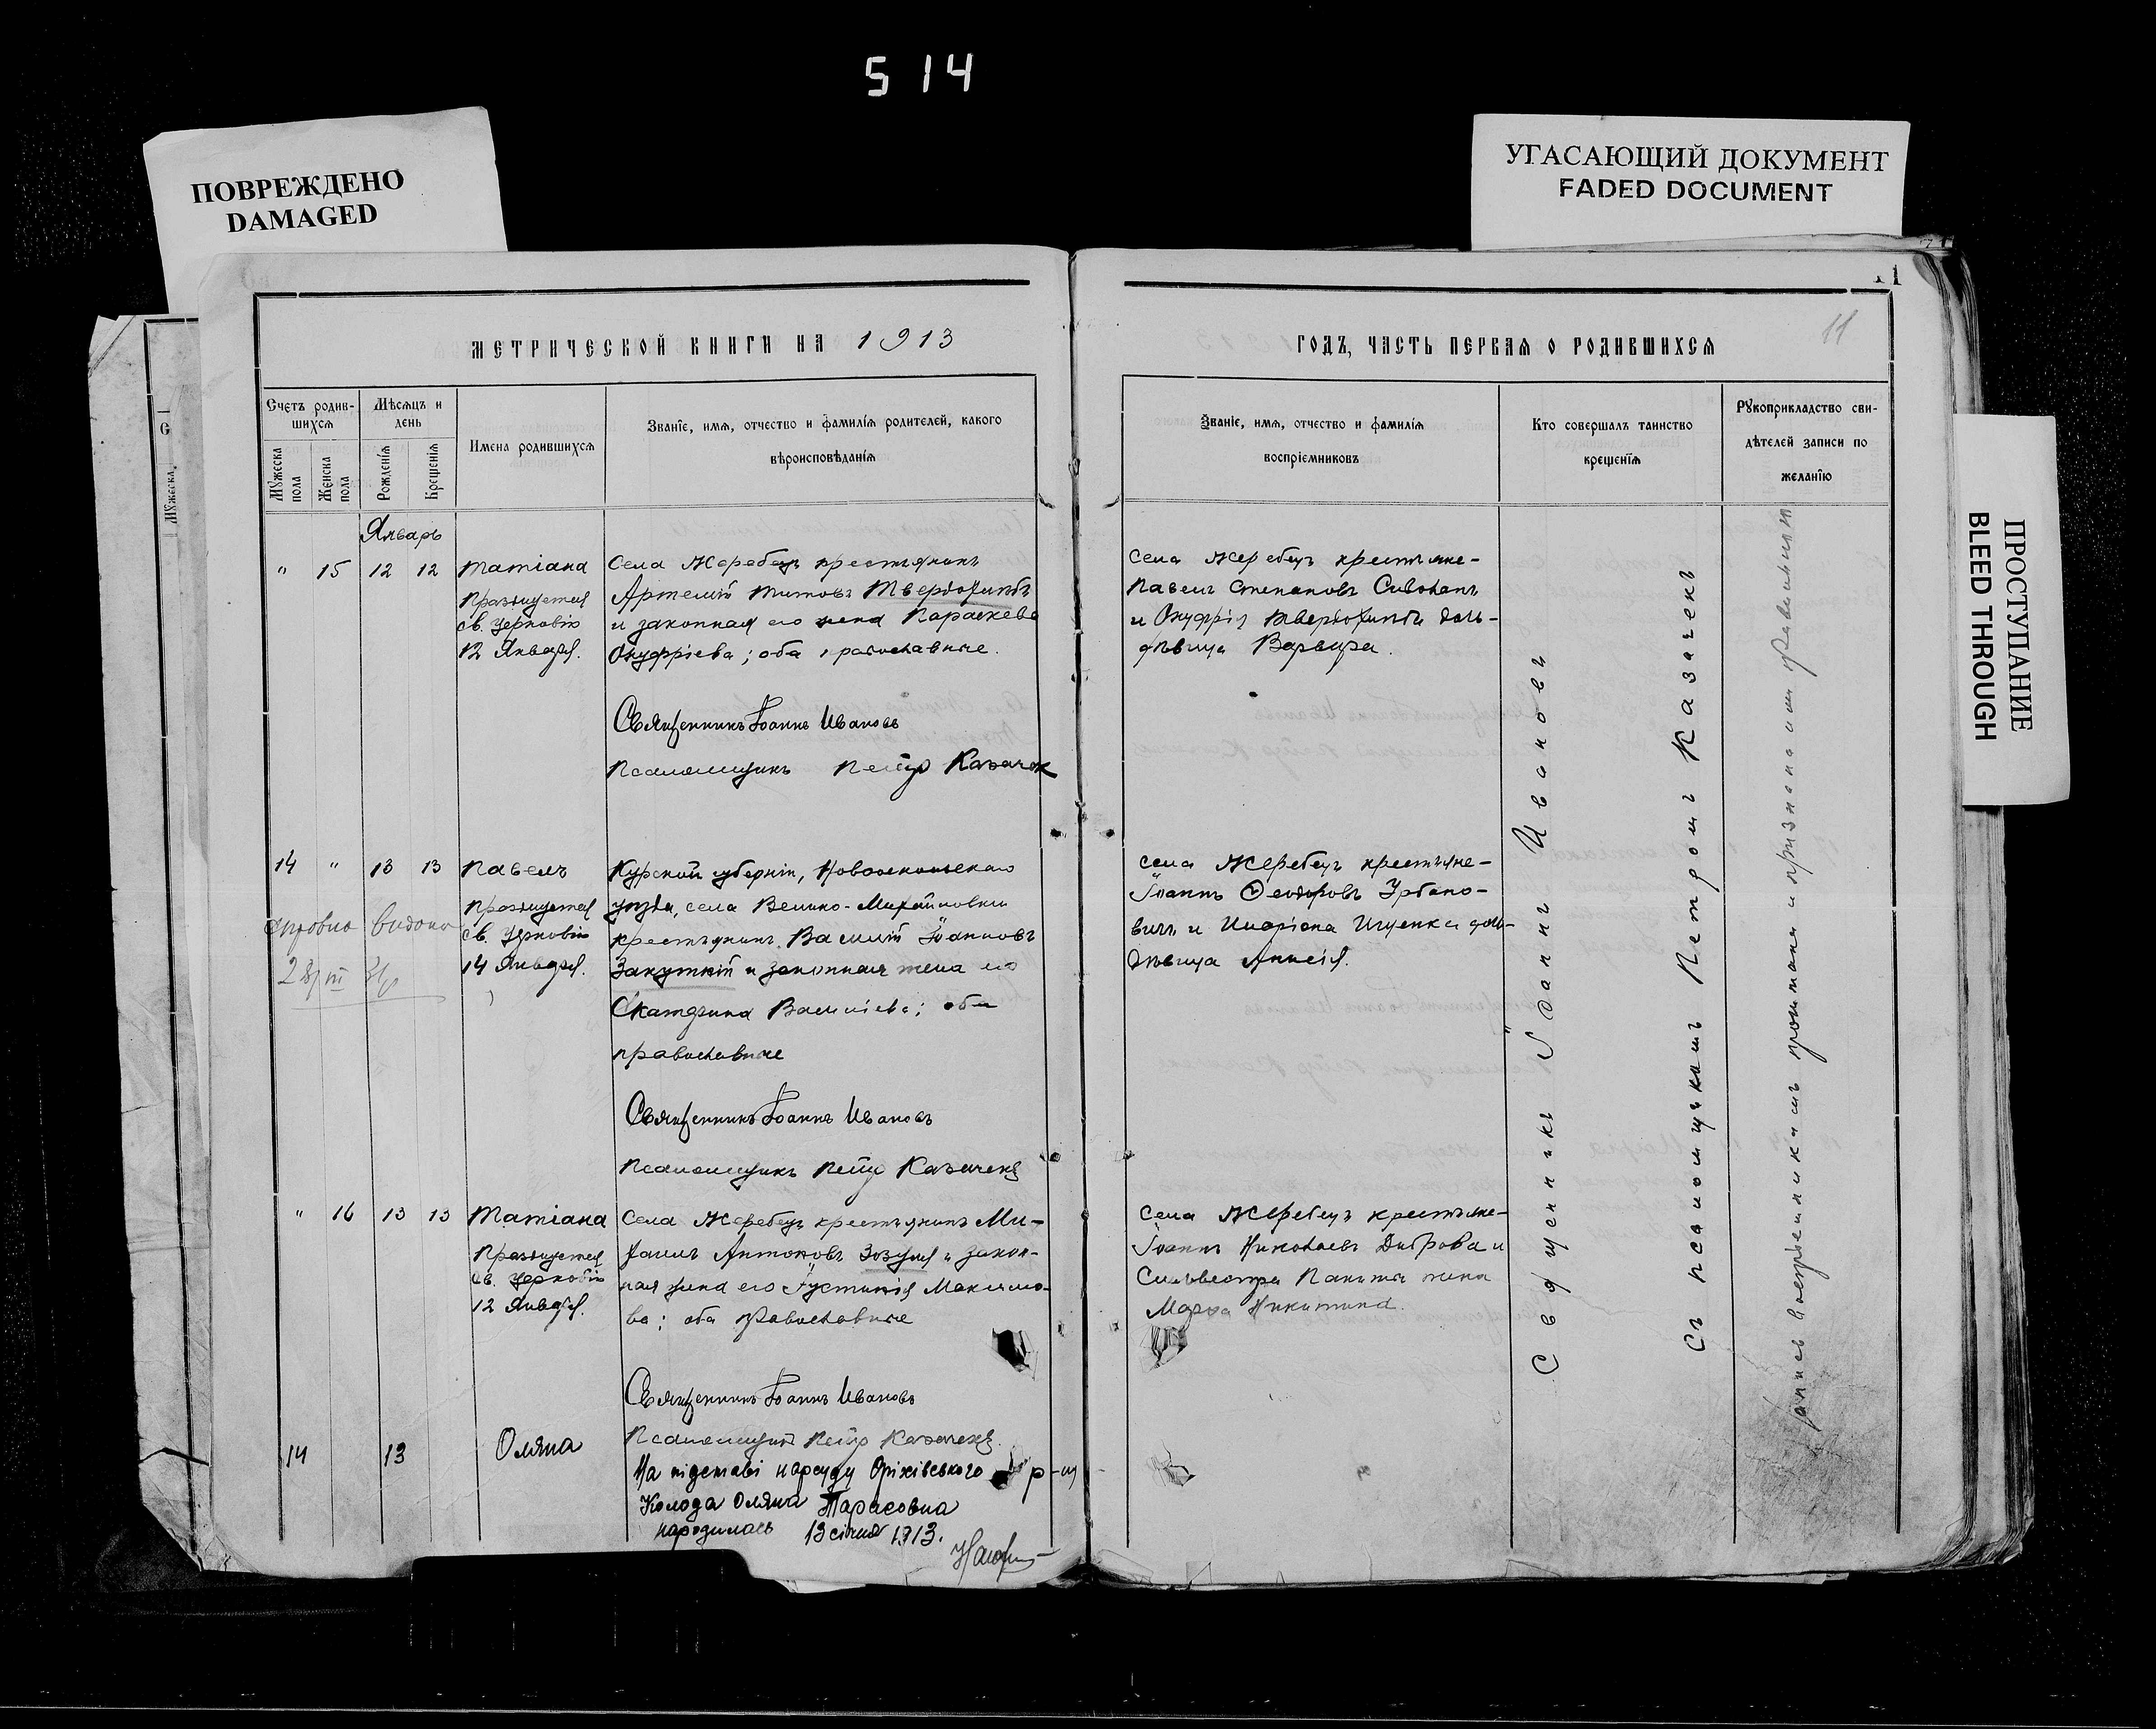 514
ПОВРЕЖДЕНО
DAMAGED
УГАСАЮЩИЙ ДОКУМЕНТ
FADED DOCUMENT
ПРОСТУПАНИЕ
BLEED THROUGH
11
МЕТРИЧЕСКОЙ КНИГИ НА 1913
ГОДЪ, ЧАСТЬ ПЕРВАЯ О РОДИВШИХСЯ
Счетъ родив-
шихся
Мужеска
пола
Женска
пола
Мѣсяцъ и
день
Рожденія
Крещенія
Имена родившихся
Званіе, имя, отчество и фамилія родителей, какого
вѣроисповѣданія
Званіе, имя, отчество и фамилія
воспріемниковъ
Кто совершалъ таинство
крещенія
Рукоприкладство сви-
дѣтелей записи по
желанію
Мужеска
Январь
" 15 12 12
Татіана
Празднуется
св. Церковію
12 Января.
Села Жеребецъ крестьянинъ
Артемій Титовъ Твердохлѣбъ
и законная его жена Параскева
Онуфріева; оба православные.
Священникъ Іоаннъ Ивановъ
Псаломщикъ Петръ Казачек
Села Жеребецъ крестьяне-
Павелъ Степановъ Сивокапъ
и Онуфрія Твердохлѣба дочь-
дѣвица Варвара.
14 " 13 13
Павелъ
Празднуется
св. Церковію
14 Января.
Курской губерніи, Новооскольскаго
уѣзда, села Велико-Михайловки
крестьянинъ Василій Іоанновъ
Закутній и законная жена его
Екатерина Васильева; оба
православные
Священникъ Іоаннъ Ивановъ
Псаломщикъ Петръ Казачекъ
села Жеребецъ крестьяне-
Іоаннъ Ѳеодоровъ Урбано-
вичъ и Иларіона Ищенка дочь-
дѣвица Анисія.
" 16 13 13
Татіана
Празднуется
св. Церковію
12 Января.
Села Жеребецъ крестьянинъ Ми-
хаилъ Антоновъ Зозуля и закон-
ная жена его Іустинія Максимо-
ва; оба православные
Священникъ Іоаннъ Ивановъ
Псаломщикъ Петръ Казачекъ
Села Жеребецъ крестьяне-
Іоаннъ Николаевъ Диброва и
Сильвестра жена
Марѳа Никитина.
Священникъ Іоаннъ Ивановъ
Съ псаломщикомъ Петромъ Казачекъ
Запись воспріемникамъ прочитана и признана ими правильной
14 13
Оляна
На підставі нарсуду Оріхівського р-ну
Колода Оляна Тарасовна
народилась 13 січня 1913.